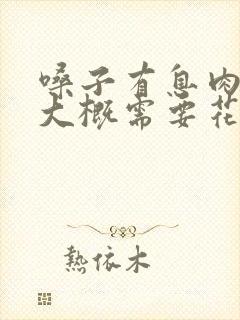 嗓子有息肉
大概需要花
熱依木